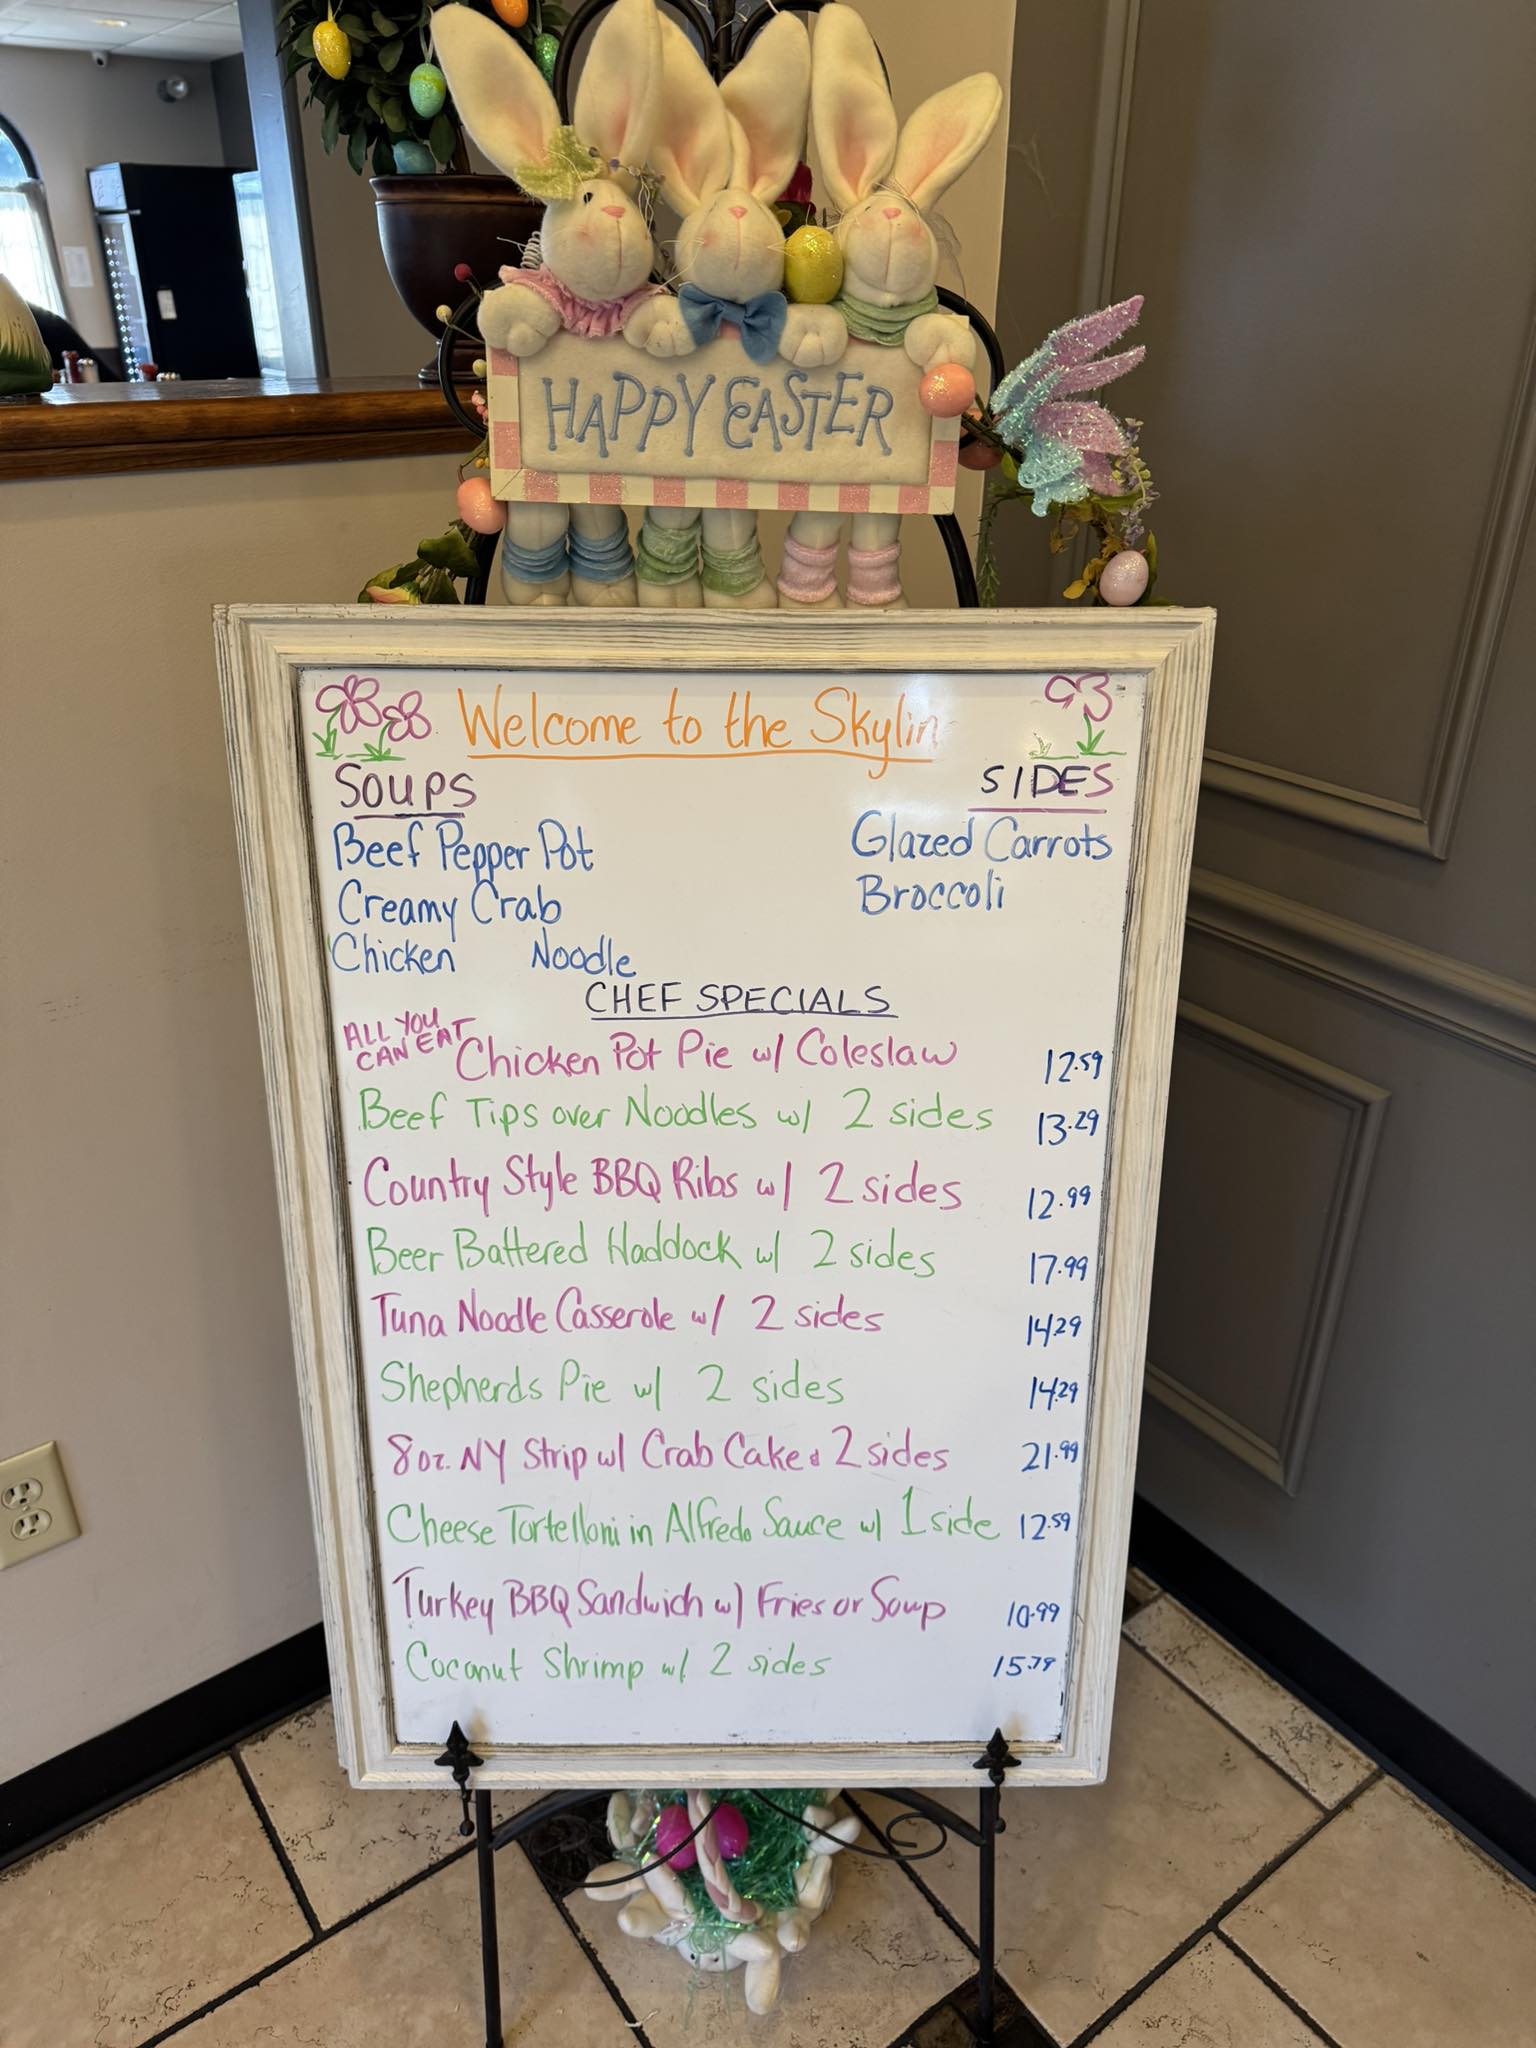 HAPPY EASTER
Welcome to the Skylin
SOUPS
Beef Pepper Pot
Creamy Crab
Chicken Noodle
SIDES
Glazed Carrots
Broccoli
CHEF SPECIALS
ALL YOU CAN EAT Chicken Pot Pie w/ Coleslaw 12.59
Beef Tips over Noodles w/ 2 sides 13.29
Country Style BBQ Ribs w/ 2 sides 12.99
Beer Battered Haddock w/ 2 sides 17.99
Tuna Noodle Casserole w/ 2 sides 14.29
Shepherds Pie w/ 2 sides 14.29
8oz. NY Strip w/ Crab Cake & 2 sides 21.99
Cheese Tortelloni in Alfredo Sauce w/ 1 side 12.59
Turkey BBQ Sandwich w/ Fries or Soup 10.99
Coconut Shrimp w/ 2 sides 15.79